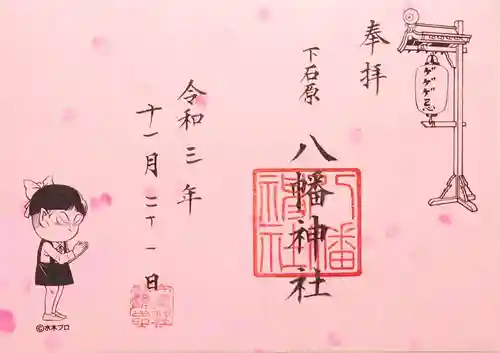 奉拝
下石原
八幡神社
令和三年
十一月二十一日
ゲゲゲ忌
©水木プロ